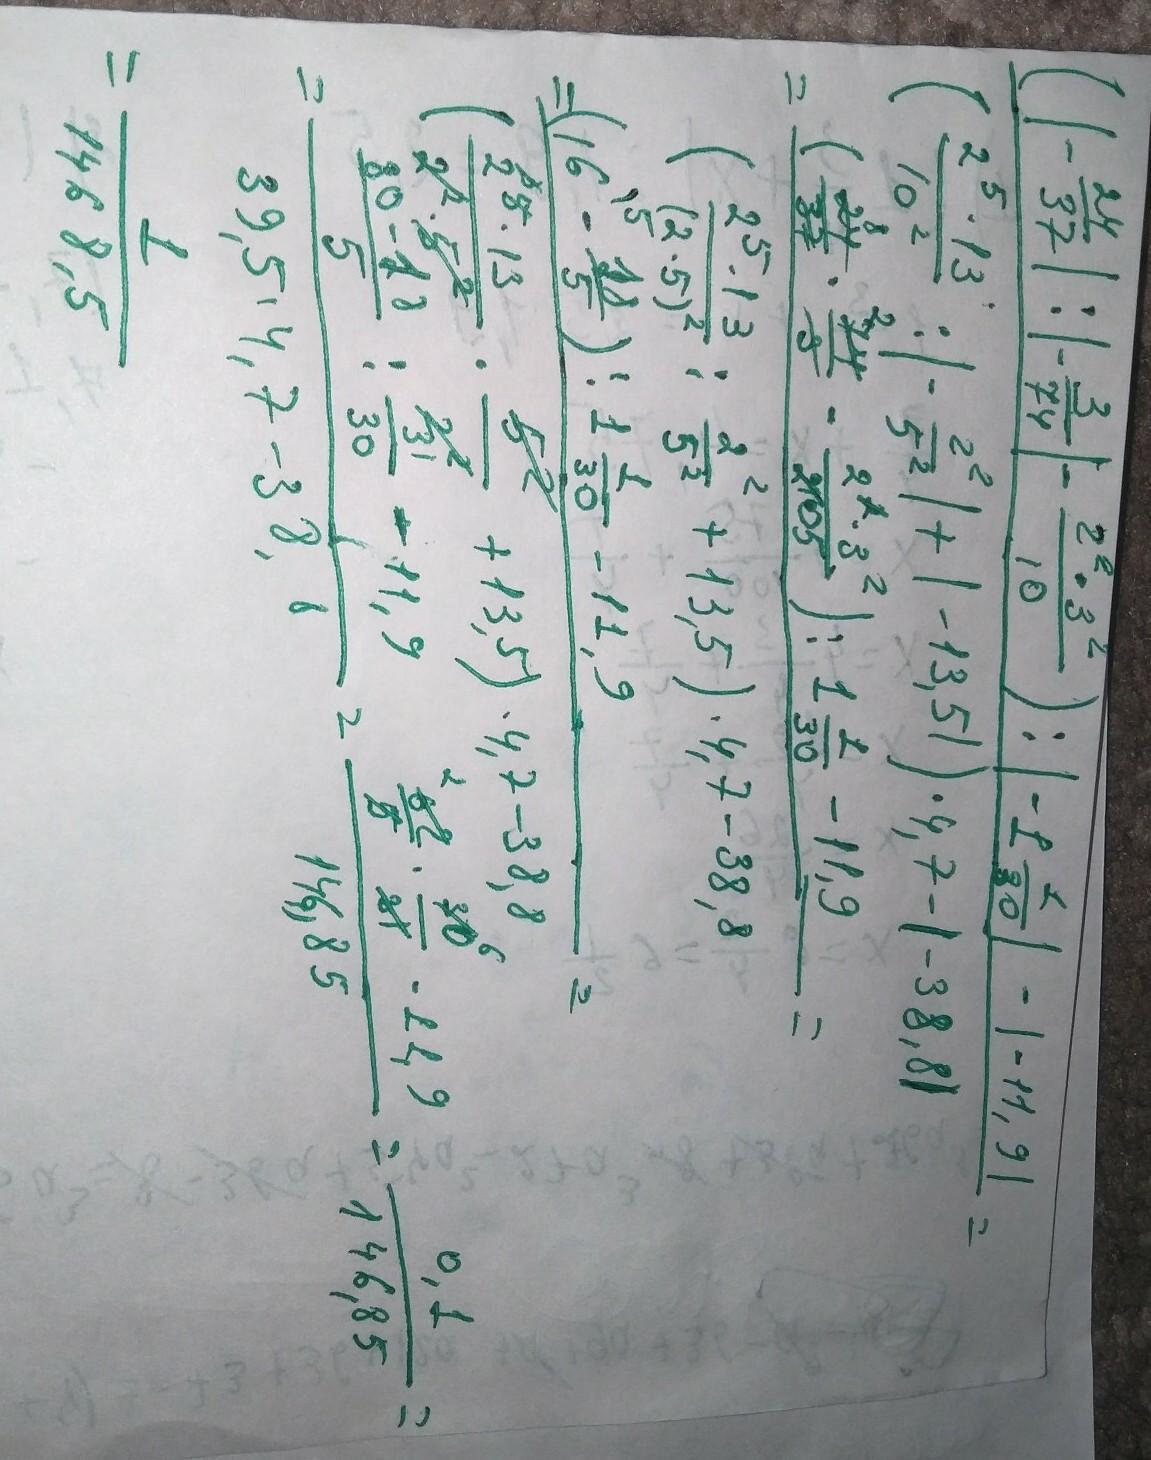 ((|-24/37| : |-3/74| - 2²·3²/10) : |-1 1/30| - |-11,9|
(2⁵·13/10² : |-2²/5²| + |-13,5|)·4,7 - |-38,8| =
= (24/37 · 74/3 - 2²·3²/10 5) : 1 1/30 - 11,9
(2⁵·13/(2·5)² : 2²/5² + 13,5)·4,7-38,8 =
=(16 - 18/5) : 1 1/30 - 11,9
(2⁵·13/2²·5² · 5²/2² + 13,5)·4,7-38,8 =
= 80-18/5 : 31/30 - 11,9 = 62/5 · 30/31 - 11,9 = 0,1 =
39,5·4,7-38,8 146,85 146,85
= 1
1468,5